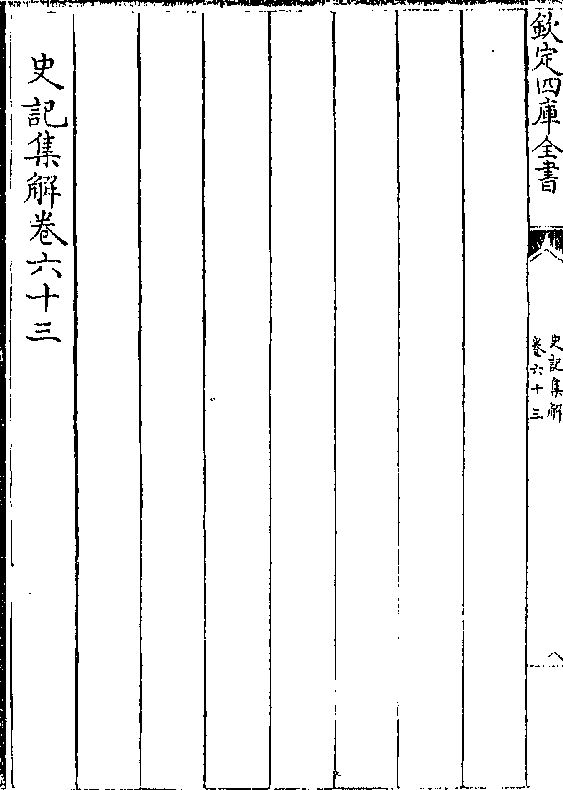 欽定四庫全書
史記集解
卷六十三
八
史記集解卷六十三